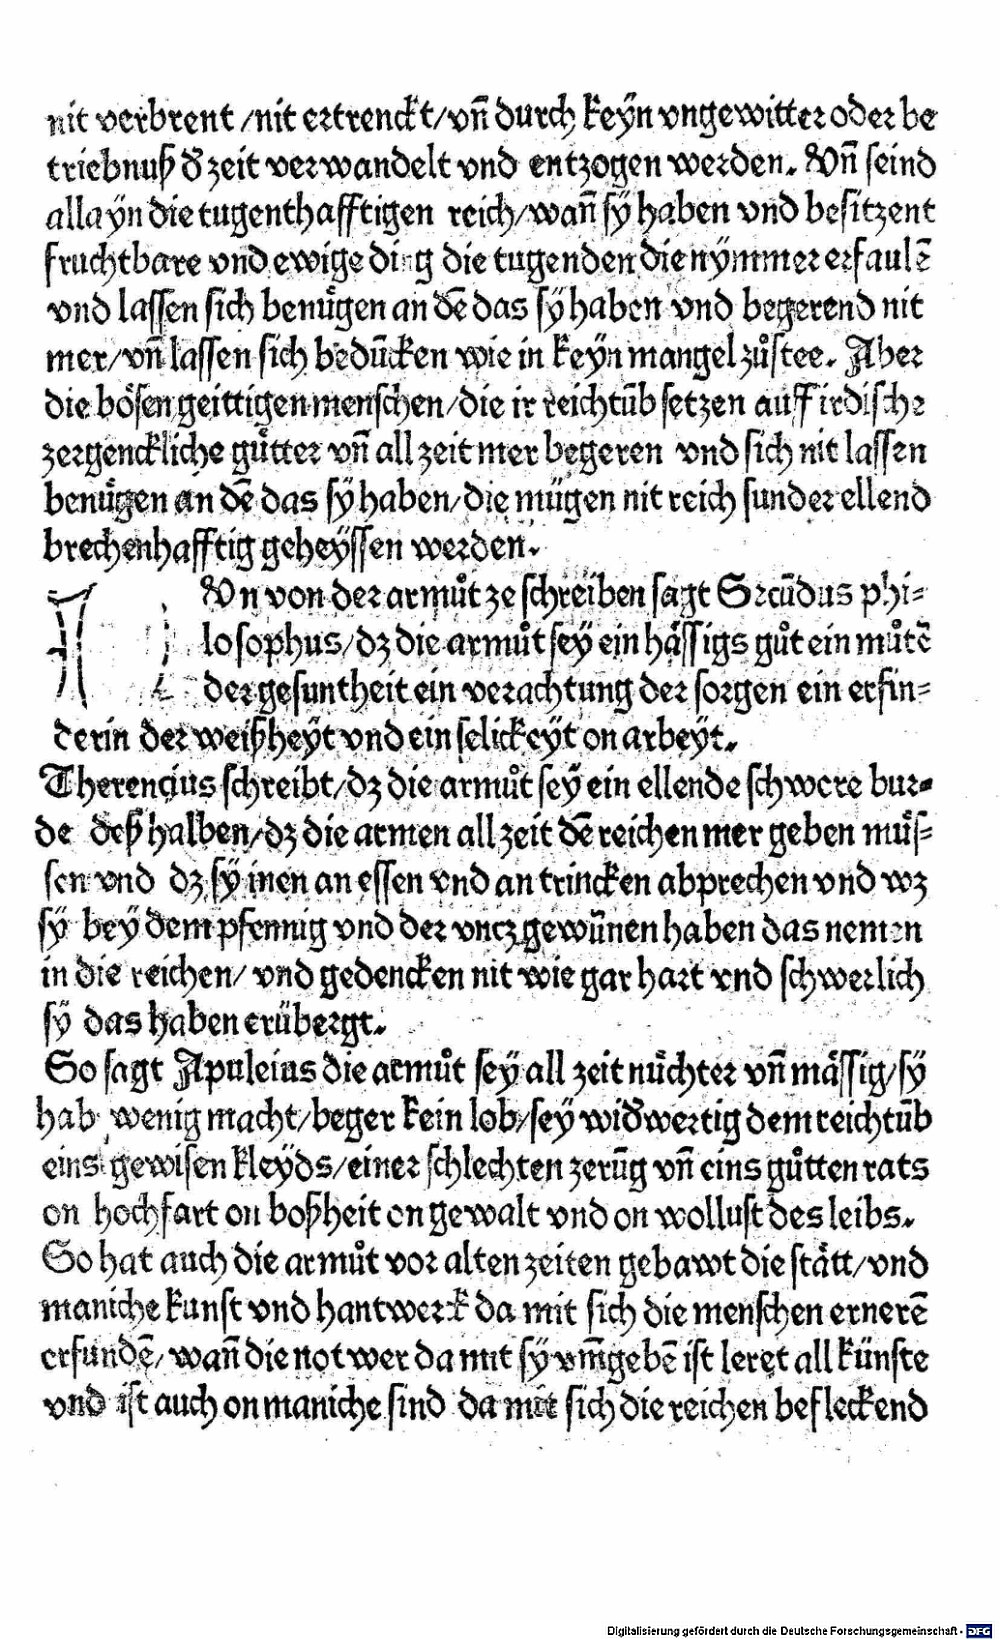 nit verbrent /nit ertrenckt/vn̄ durch keÿn vngewitter oder be
triebnuß đ zeit verwandelt vnd entzogen werden. Vn̄ seind
allaÿn die tugenthafftigen reich/wan̄ sÿ haben vnd besitzent
fruchtbare vnd ewige ding die tugenden die nÿmmer erfaulē
vnd lassen sich benuͤgen an dē das sÿ haben vnd begerend nit
mer/vn̄ lassen sich bedūcken wie in keÿn mangel zůstee. Aber
die boͤsen geittigen menschen/die ir reichtūb setzen auff irdische
zergenckliche guͤtter vn̄ all zeit mer begeren vnd sich nit lassen
benuͤgen an dē das sÿ haben/die mügen nit reich sunder ellend
brechenhafftig geheÿssen werden.
Vn von der armůt ze schreiben sagt Secūdus phi⸗
losophus/dz die armůt seÿ ein haͤssigs gůt ein můtē
der gesuntheit ein verachtung der sorgen ein erfin⸗
derin der weißheÿt vnd ein selickeÿt on arbeÿt.
Therencius schreibt/dz die armůt seÿ ein ellende schwere bur⸗
de deß halben/dz die armen all zeit dē reichen mer geben muͤs⸗
sen vnd dz sÿ inen an essen vnd an trincken abprechen vnd wz
sÿ beÿ dem pfennig vnd der vntz gewūnen haben das nemen
in die reichen/ vnd gedencken nit wie gar hart vnd schwerlich
sÿ das haben erübergt.
So sagt Apuleius die armůt seÿ all zeit nuͤchter vn̄ maͤssig/sÿ
hab wenig macht/beger kein lob/seÿ widwertig dem reichtūb
eins gewisen kleÿds/einer schlechten zerūg vn̄ eins gůtten rats
on hochfart on boßheit on gewalt vnd on wollust des leibs.
So hat auch die armůt vor alten zeiten gebawt die staͤtt/vnd
maniche kunst vnd hantwerck da mit sich die menschen ernerē
erfundē/wan̄ die not wer da mit sÿ vm̄gebē ist leret all künste
vnd ist auch on maniche sind da mit sich die reichen befleckend
Digitalisierung gefördert durch die Deutsche Forschungsgemeinschaft - DFG